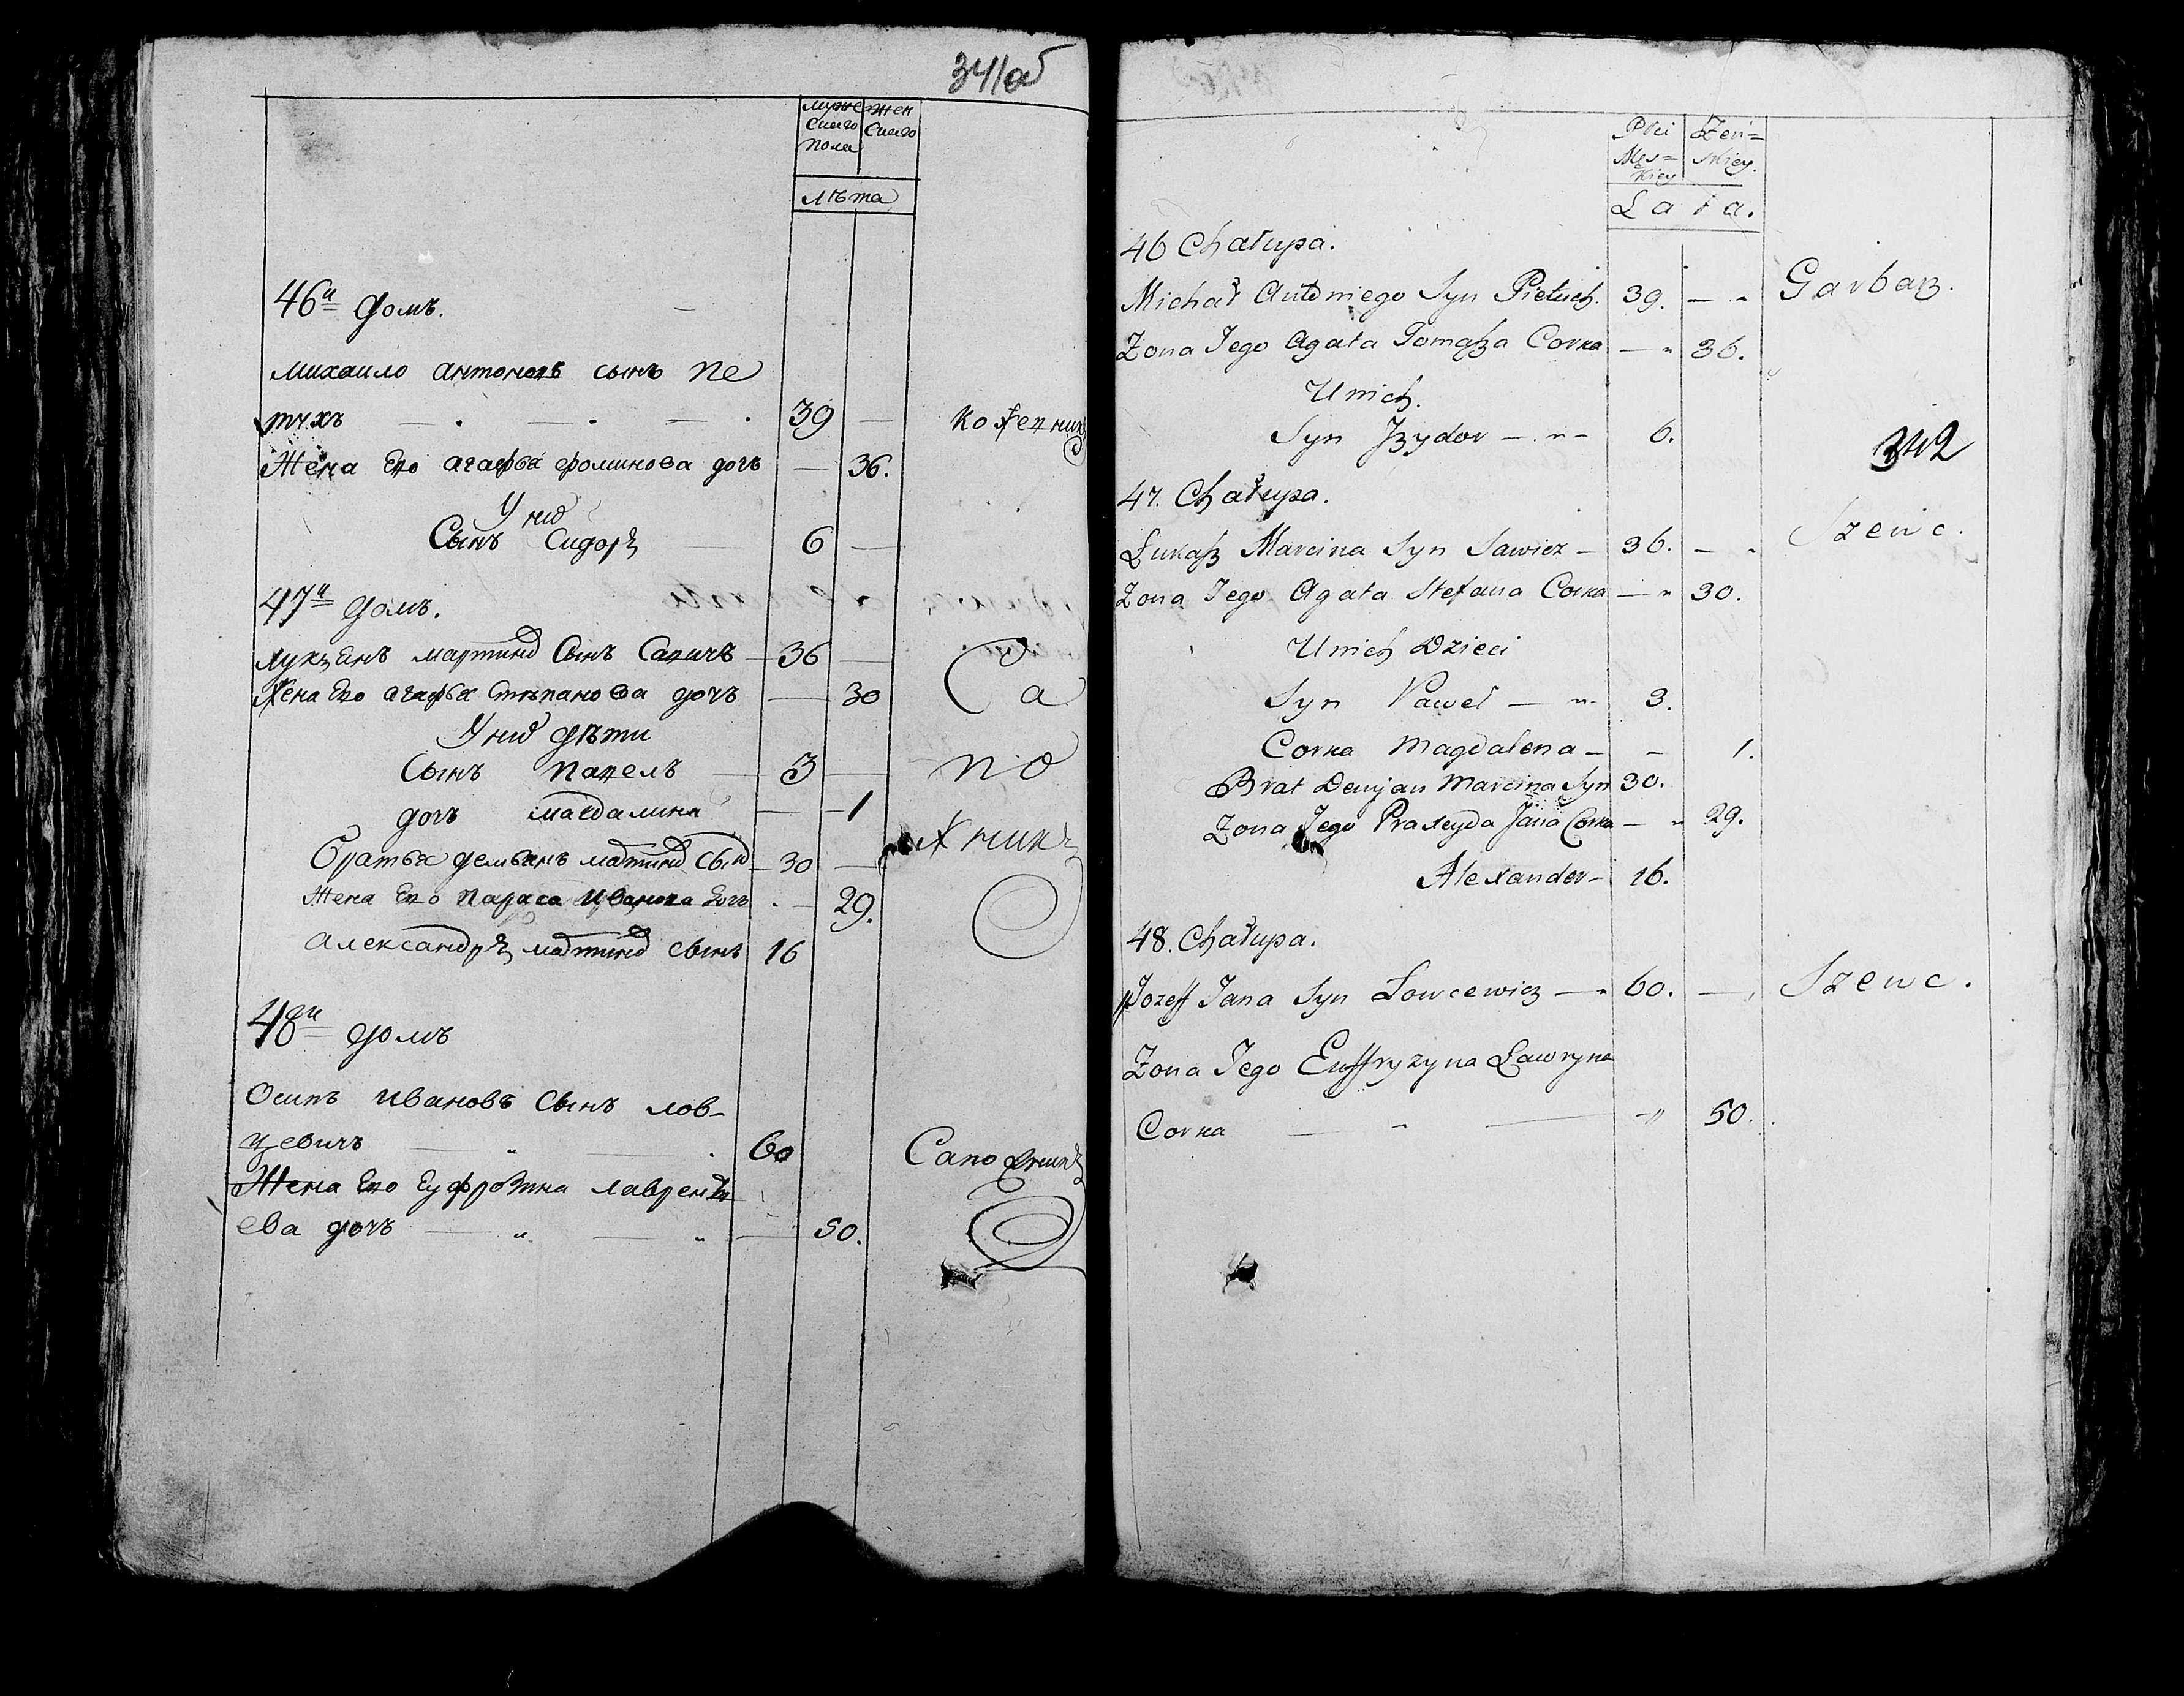 341об
муже жен
скаго скаго
пола
лѣта
46й домъ.
михаило антоновъ сынъ пе
тухъ 39 — кожевникъ
жена его агафья фоминова дочь — 36.
У них
Сынъ Сидоръ 6 —
47й домъ.
лукьянъ мартинов сынъ Савичъ — 36 —
жена его агафья степанова дочь — 30
Са
У них дѣти
сынъ павелъ — 3 —
по
дочь магдалина — 1
жникъ
братья демьянъ мартинов сын — 30 —
жена его параса иванова дочь — 29.
александръ мартинов сынъ 16
48й домъ
осипъ ивановъ сынъ лов-
цевичъ — 60 Сапожникъ
жена его еуфрозина лаврентьи
ева дочь — 50.
Płci Żeń=
Męs= skiey.
kiey
Lata.
46 Chałupa.
Michał Antoniego Syn Pietuch. 39. — Garbarz.
Zona Jego Agata Tomasza Corka — 36.
U nich.
Syn Jzydor — 6.
342
47. Chałupa.
Łukasz Marcina Syn Sawicz — 36. — Szewc.
Zona Jego Agata Stefana Corka — 30.
U nich Dzieci
Syn Paweł — 3.
Corka Magdalena — — 1.
Brat Demjan Marcina Syn 30.
Zona Jego Praxeyda Jana Corka — 29.
Alexander — 16.
48. Chałupa.
Jozeff Jana Syn Łowcewicz — 60. — Szewc.
Zona Jego Euffryzyna Ławryna
Corka — — 50.